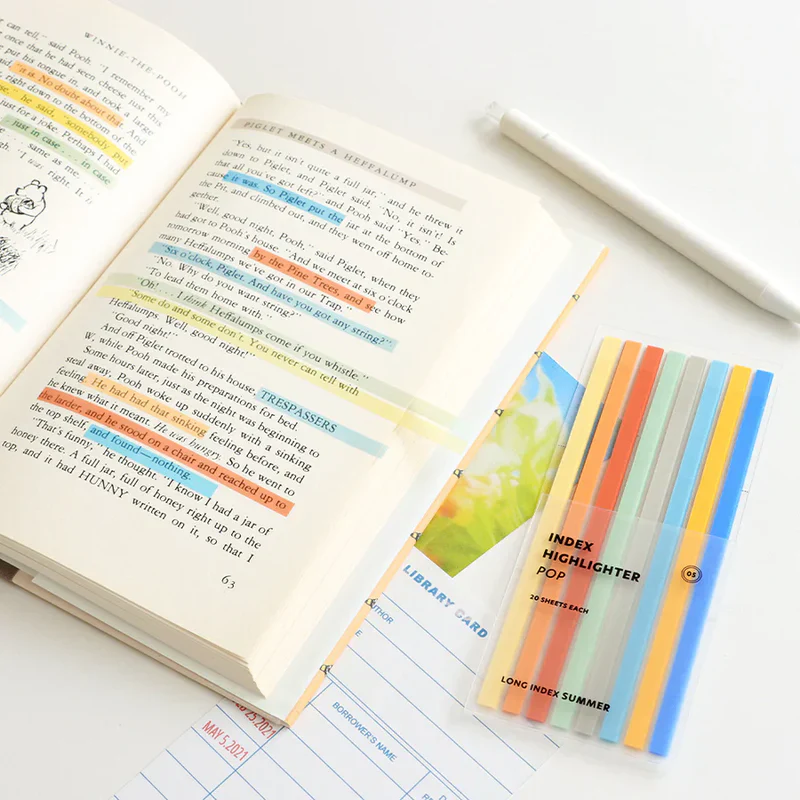 WINNIE-THE-POOH
can tell," said Pooh. "I remember my
once that he had seen cheese just this
put his tongue in, and took a large
"it is. No doubt about that. And
right down to the bottom of the
he said, "somebody put
just for a joke. Perhaps I had
just in case . . . in case
same as me.
"I was right. It is
PIGLET MEETS A HEFFALUMP
"Yes, but it isn't quite a full jar," and he threw it
down to Piglet, and Piglet said, "No, it isn't. Is
that all you've got left?" and Pooh said "Yes." Be-
cause it was. So Piglet put the jar at the bottom of
the Pit, and climbed out, and they went off home to-
gether.
"Well, good night, Pooh," said Piglet, when they
had got to Pooh's house. "And we meet at six o'clock
tomorrow morning by the Pine Trees, and see how
many Heffalumps we've got in our Trap."
"Six o'clock, Piglet. And have you got any string?"
"No. Why do you want string?"
"To lead them home with."
"Oh! . . . I think Heffalumps come if you whistle."
"Some do and some don't. You never can tell with
Heffalumps. Well, good night!"
"Good night!"
And off Piglet trotted to his house, TRESPASSERS
W, while Pooh made his preparations for bed.
Some hours later, just as the night was beginning to
steal away, Pooh woke up suddenly with a sinking
feeling. He had had that sinking feeling before, and
he knew what it meant. He was hungry. So he went to
the larder, and he stood on a chair and reached up to
the top shelf, and found—nothing.
"That's funny," he thought. "I know I had a jar of
honey there. A full jar, full of honey right up to the
top, and it had HUNNY written on it, so that I
63
LIBRARY CARD
AUTHOR
BORROWER'S NAME
25.2021
MAY 5.2021
INDEX
HIGHLIGHTER
POP
05
20 SHEETS EACH
LONG INDEX SUMMER